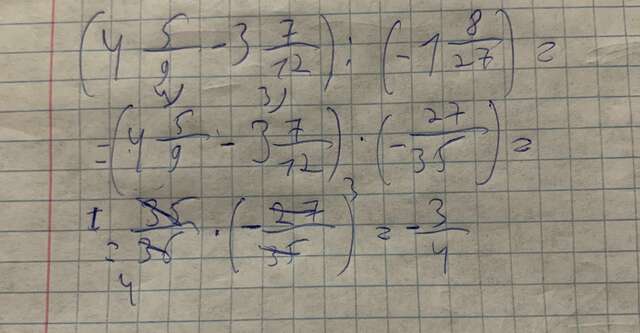 (4 5/9 - 3 7/12) : (-1 8/27) =
= (4 5/9 - 3 7/12) · (- 27/35) =
= 35/36 · (- 27/35) = - 3/4